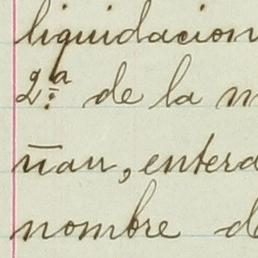 liquidacion
2.ª de la m
ñan, entera
nombre de